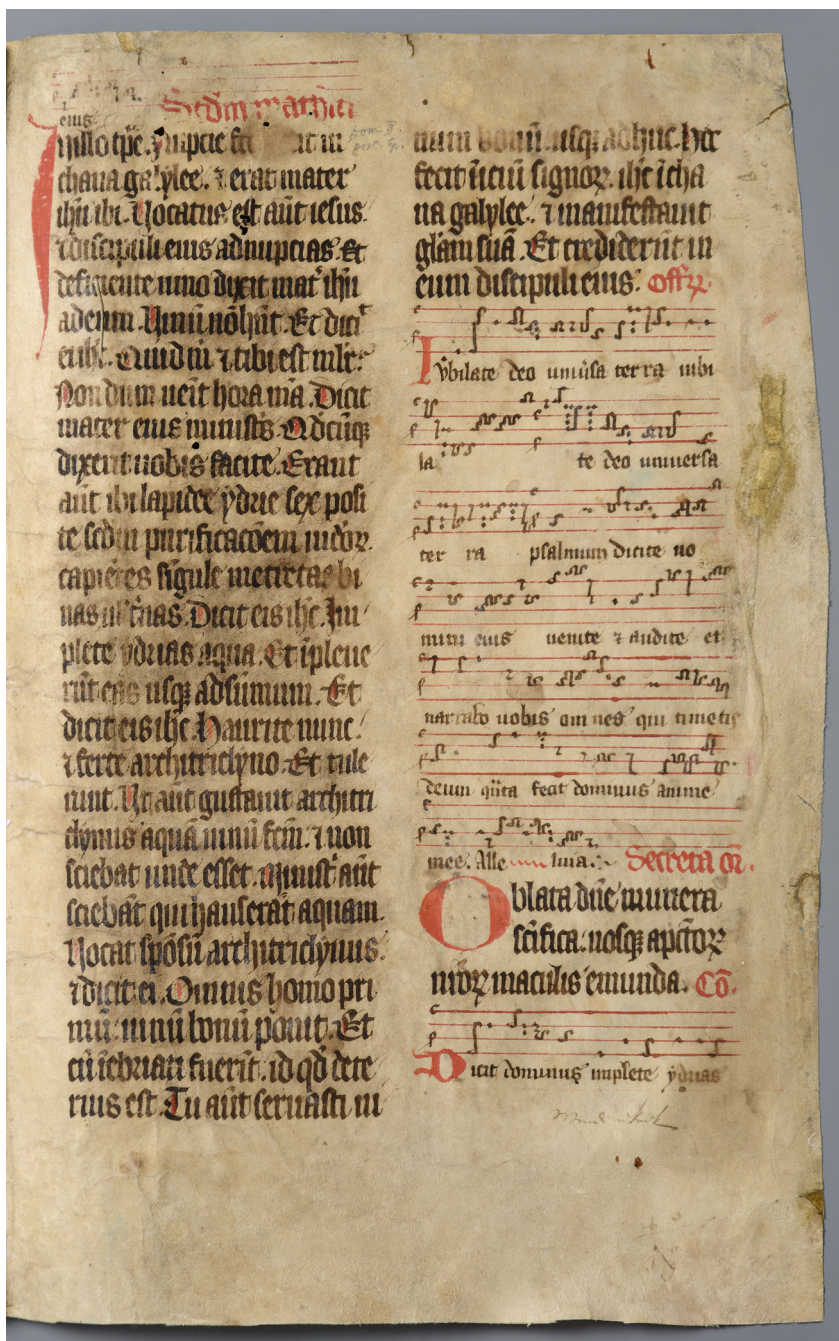 Scdm mathei
eius
In illo tpe. Nupcie fc in
chana galylee. ⁊ erat mater
ihu ibi. Vocatus est aut iesus
⁊ discipuli eius ad nupcias. Et
deficiente uino dixit mat ihu
ad eum. Vinū nō hnt. Et dicit
ei ihc. Quid m ⁊ tibi est mlr.
Nondum uenit hora mā. Dicit
mater eius mīistris. Qdcūq
dixerit uobis facite. Erant
aut ibi lapidee ydrie sex posi
te scdm purificacōem iudeoꝝ
capientes sīgule metretas bi
nas ul ternas. Dicit eis ihc. Im
plete ydrias aqua. Et īpleue
rūt eas usqꝫ ad sūmum. Et
dicit eis ihc. Haurite nunc
⁊ ferte architriclyno. Et tule
runt. Ut aut gustauit architri
clynus aquā uinū fcm. ⁊ non
sciebat unde esset. Minist aūt
sciebāt qui hauserāt aquam.
Vocat spōsū architriclynus.
⁊ dicit ei. Omnis homo pri
mū uinū bonū ponit. Et
cū īebriati fuerīt. id qd dete
rius est. Tu aūt seruasti ui
num bonū. usqꝫ adhuc. Hoc
fecit īiciū signoꝝ. ihc ī cha
na galylee. ⁊ manifestauit
glam suā. Et crediderūt in
eum discipuli eius. Offꝝ
Iubilate deo uniūsa terra iubi
la te deo uniuersa
ter ra psalmum dicite no
mini eius uenite ⁊ audite et
narrabo uobis omnes qui timetis
deum quāta fecit dominus anime
mee. Alle luia. Secreta oꝝ.
Oblata dne munera
scīfica. nosqꝫ a pctoꝝ
nroꝝ maculis emunda. Cō.
Dicit dominus implete ydrias